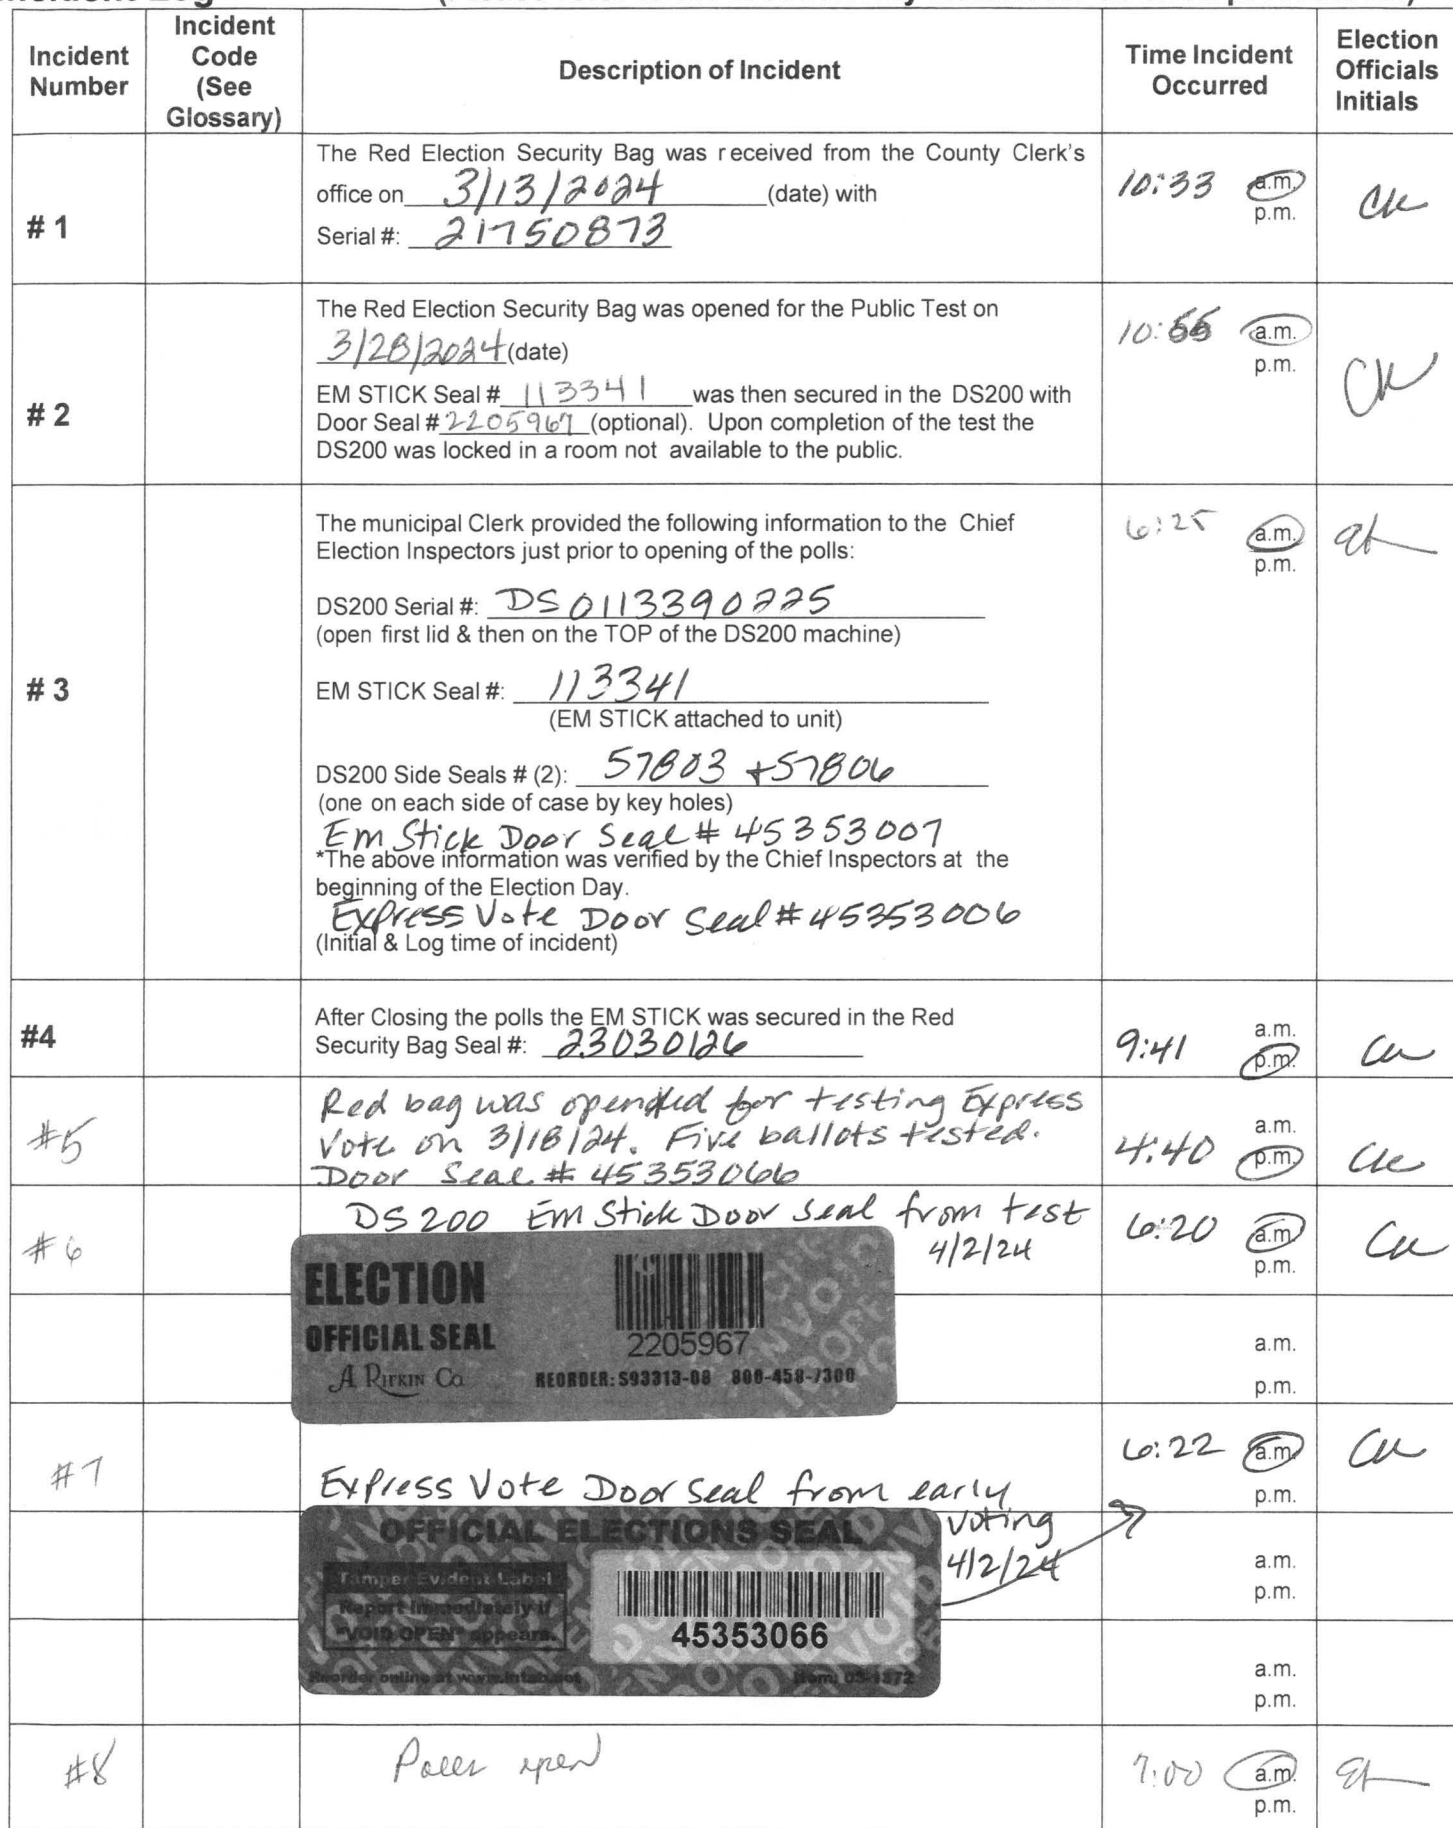 Incident
Number
Incident
Code
(See
Glossary)
Description of Incident
Time Incident
Occurred
Election
Officials
Initials
# 1
The Red Election Security Bag was received from the County Clerk's
office on 3/13/2024 (date) with
Serial #: 21750873
10:33 a.m.
p.m.
CK
# 2
The Red Election Security Bag was opened for the Public Test on
3/28/2024 (date)
EM STICK Seal # 113341 was then secured in the DS200 with
Door Seal # 2205967 (optional). Upon completion of the test the
DS200 was locked in a room not available to the public.
10: a.m.
p.m.
CK
# 3
The municipal Clerk provided the following information to the Chief
Election Inspectors just prior to opening of the polls:
DS200 Serial #: DS0113390225
(open first lid & then on the TOP of the DS200 machine)
EM STICK Seal #: 113341
(EM STICK attached to unit)
DS200 Side Seals # (2): 57803 + 57806
(one on each side of case by key holes)
Em Stick Door Seal # 45353007
*The above information was verified by the Chief Inspectors at the
beginning of the Election Day.
Express Vote Door Seal # 45353006
(Initial & Log time of incident)
6:25 a.m.
p.m.
#4
After Closing the polls the EM STICK was secured in the Red
Security Bag Seal #: 23030126
9:41 a.m.
p.m.
#5
Red bag was opended for testing Express
Vote on 3/18/24. Five ballots tested.
Door Seal # 45353066
4:40 a.m.
p.m.
#6
DS200 Em Stick Door Seal from test
4/2/24
6:20 a.m.
p.m.
ELECTION
OFFICIAL SEAL
A RIFKIN Co
2205967
REORDER: S93313-08 800-458-7300
a.m.
p.m.
#7
Express Vote Door Seal from early
voting
4/2/24
6:22 a.m.
p.m.
OFFICIAL ELECTIONS SEAL
Tamper Evident Label
Report immediately if
"VOID OPEN" appears.
45353066
Reorder online at www.intab.net
Item: 03-1372
a.m.
p.m.
a.m.
p.m.
#8
Polls open
7:00 a.m.
p.m.